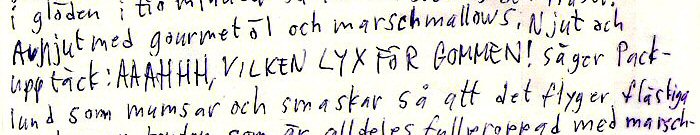 i glöden i tio
Avnjut med gourmetöl och marschmallows. Njut och
upptäck: AAAHHH, VILKEN LYX FÖR GOMMEN! säger Pack-
lund som mumsar och smaskar så att det flyger fläskiga
som är alldeles fullproppad med marsch-